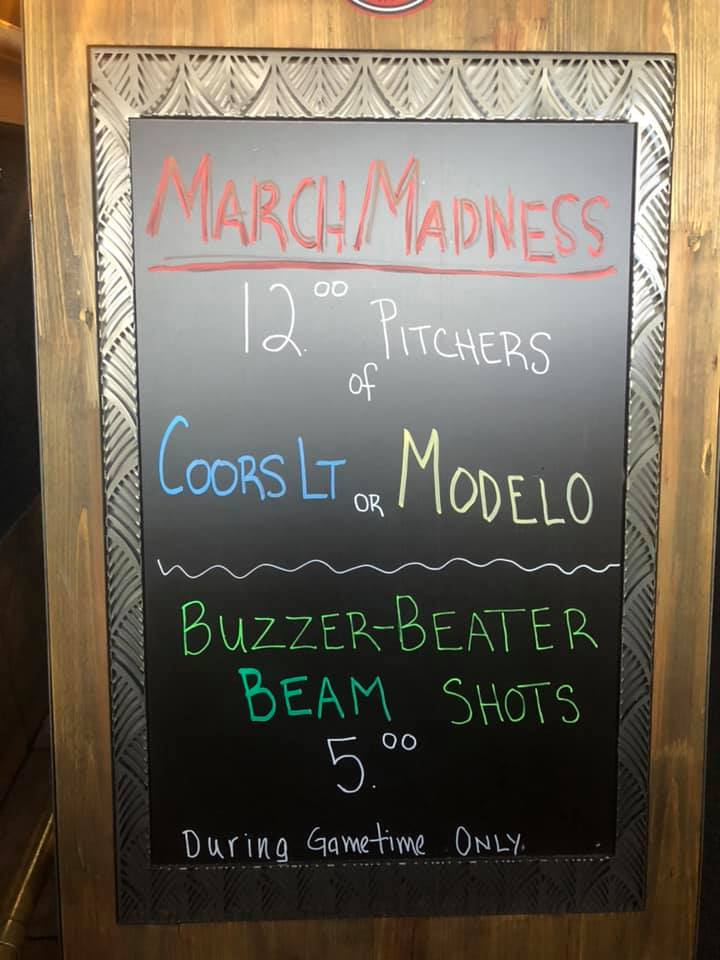 MARCH MADNESS
12.00 PITCHERS
of
COORS LT OR MODELO
BUZZER-BEATER
BEAM SHOTS
5.00
During Gametime ONLY.